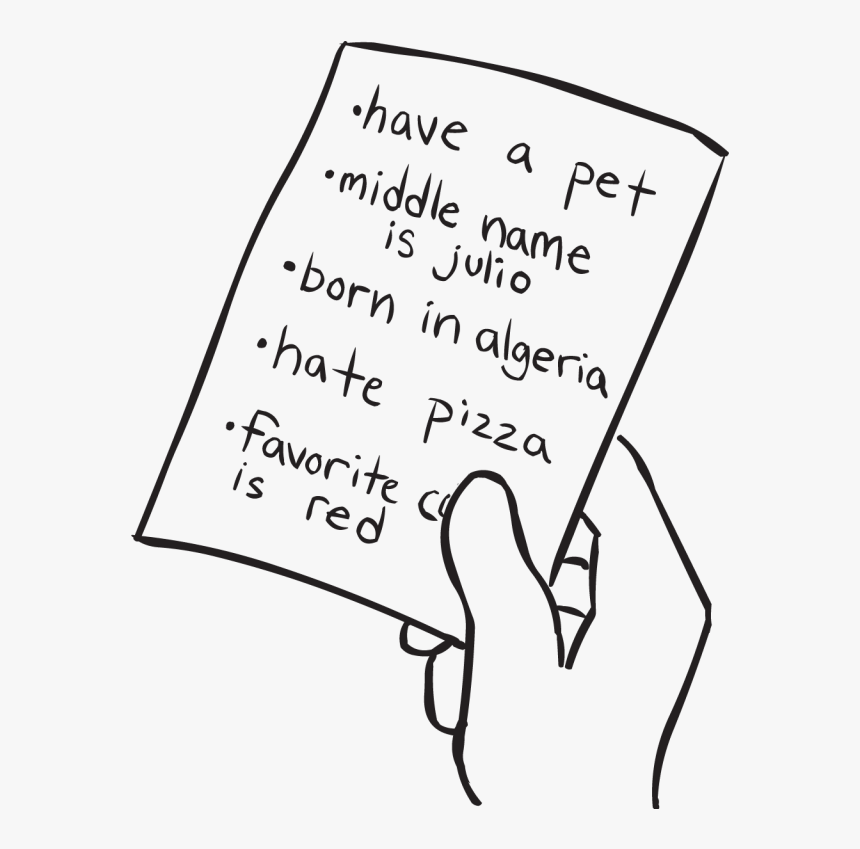 •have a pet
•middle name
is julio
•born in algeria
•hate pizza
•favorite co
is red